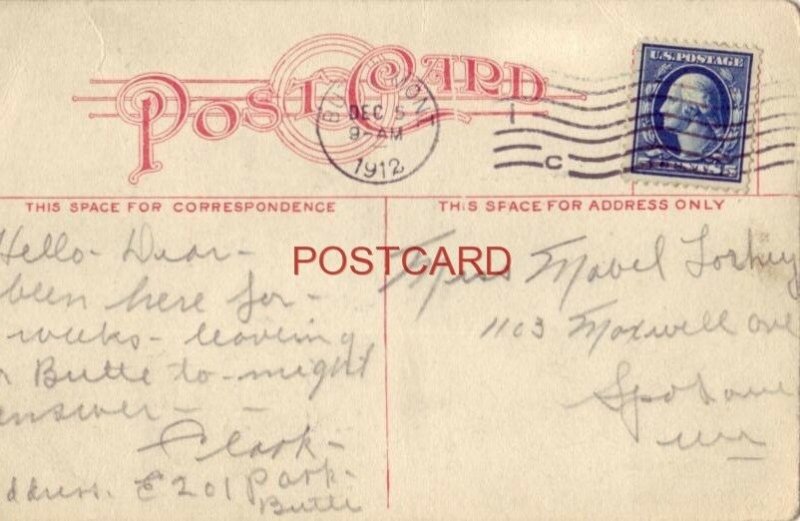 POST CARD
DEC 5
9-AM
1912
C
U.S. POSTAGE
CENTS 5
THIS SPACE FOR CORRESPONDENCE
THIS SPACE FOR ADDRESS ONLY
POSTCARD
Hello- Dear-
been here for-
weeks- leaving
Butte to-might
answer- -
Clark-
ddress. E 201 Park-
Butte
Miss Mabel
1103 Maxwell ave
Spokane